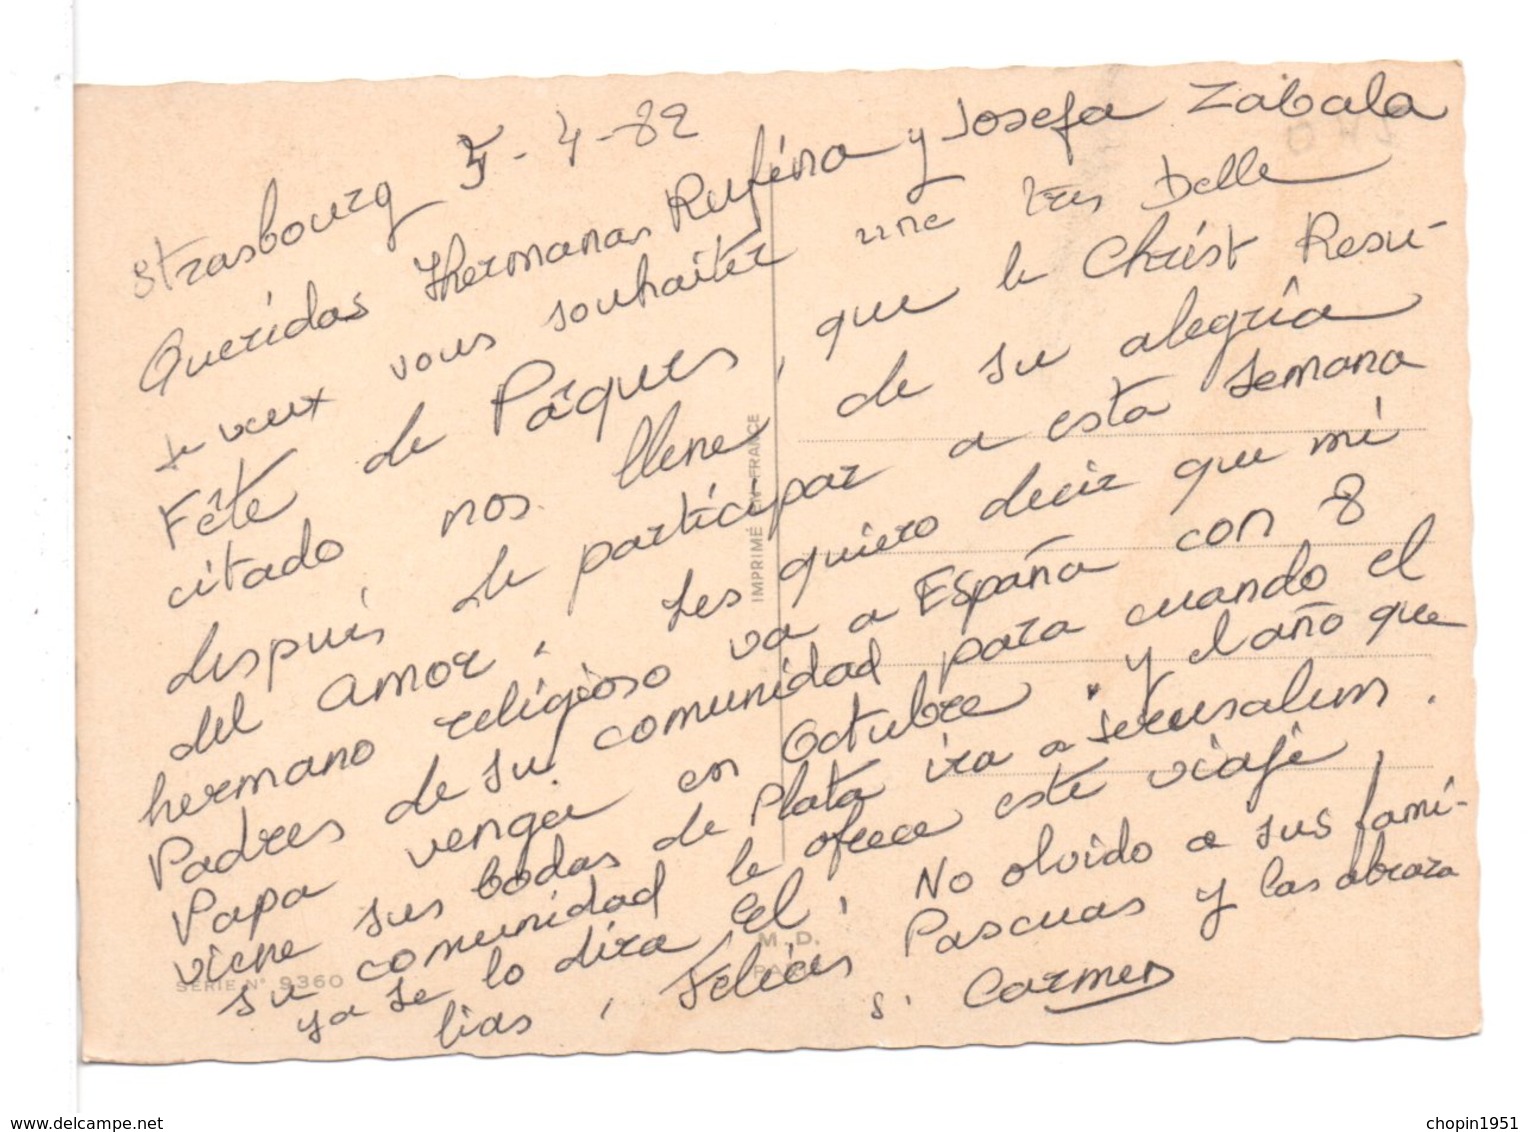 Strasbourg 5-4-82
Queridas Hermanas Rufina y Josefa Zabala
Je veux vous souhaiter une tres Belle
Fête de Pâques, que le Christ Resu-
citado nos llene de su alegría
después de participar a esta semana
del amor. Les quiero decir que mi
hermano religioso va a España con 8
Padres de su comunidad para cuando el
Papa venga en Octubre. y el año que
viene sus bodas de Plata ira a Jerusalem.
su comunidad le ofrece este viaje,
ya se lo dira El. No olvido a sus fami-
lias, Felices Pascuas y las abraza
S. Carmen
IMPRIMÉ EN FRANCE
M. D.
PARIS
SERIE N° 9360
www.delcampe.net
chopin1951